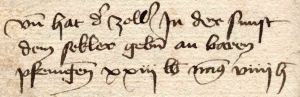 vn̄ hat d' zoll' In der sunst
dem sekler gebn̄ an baren
pfenigen̄ xxiij lb